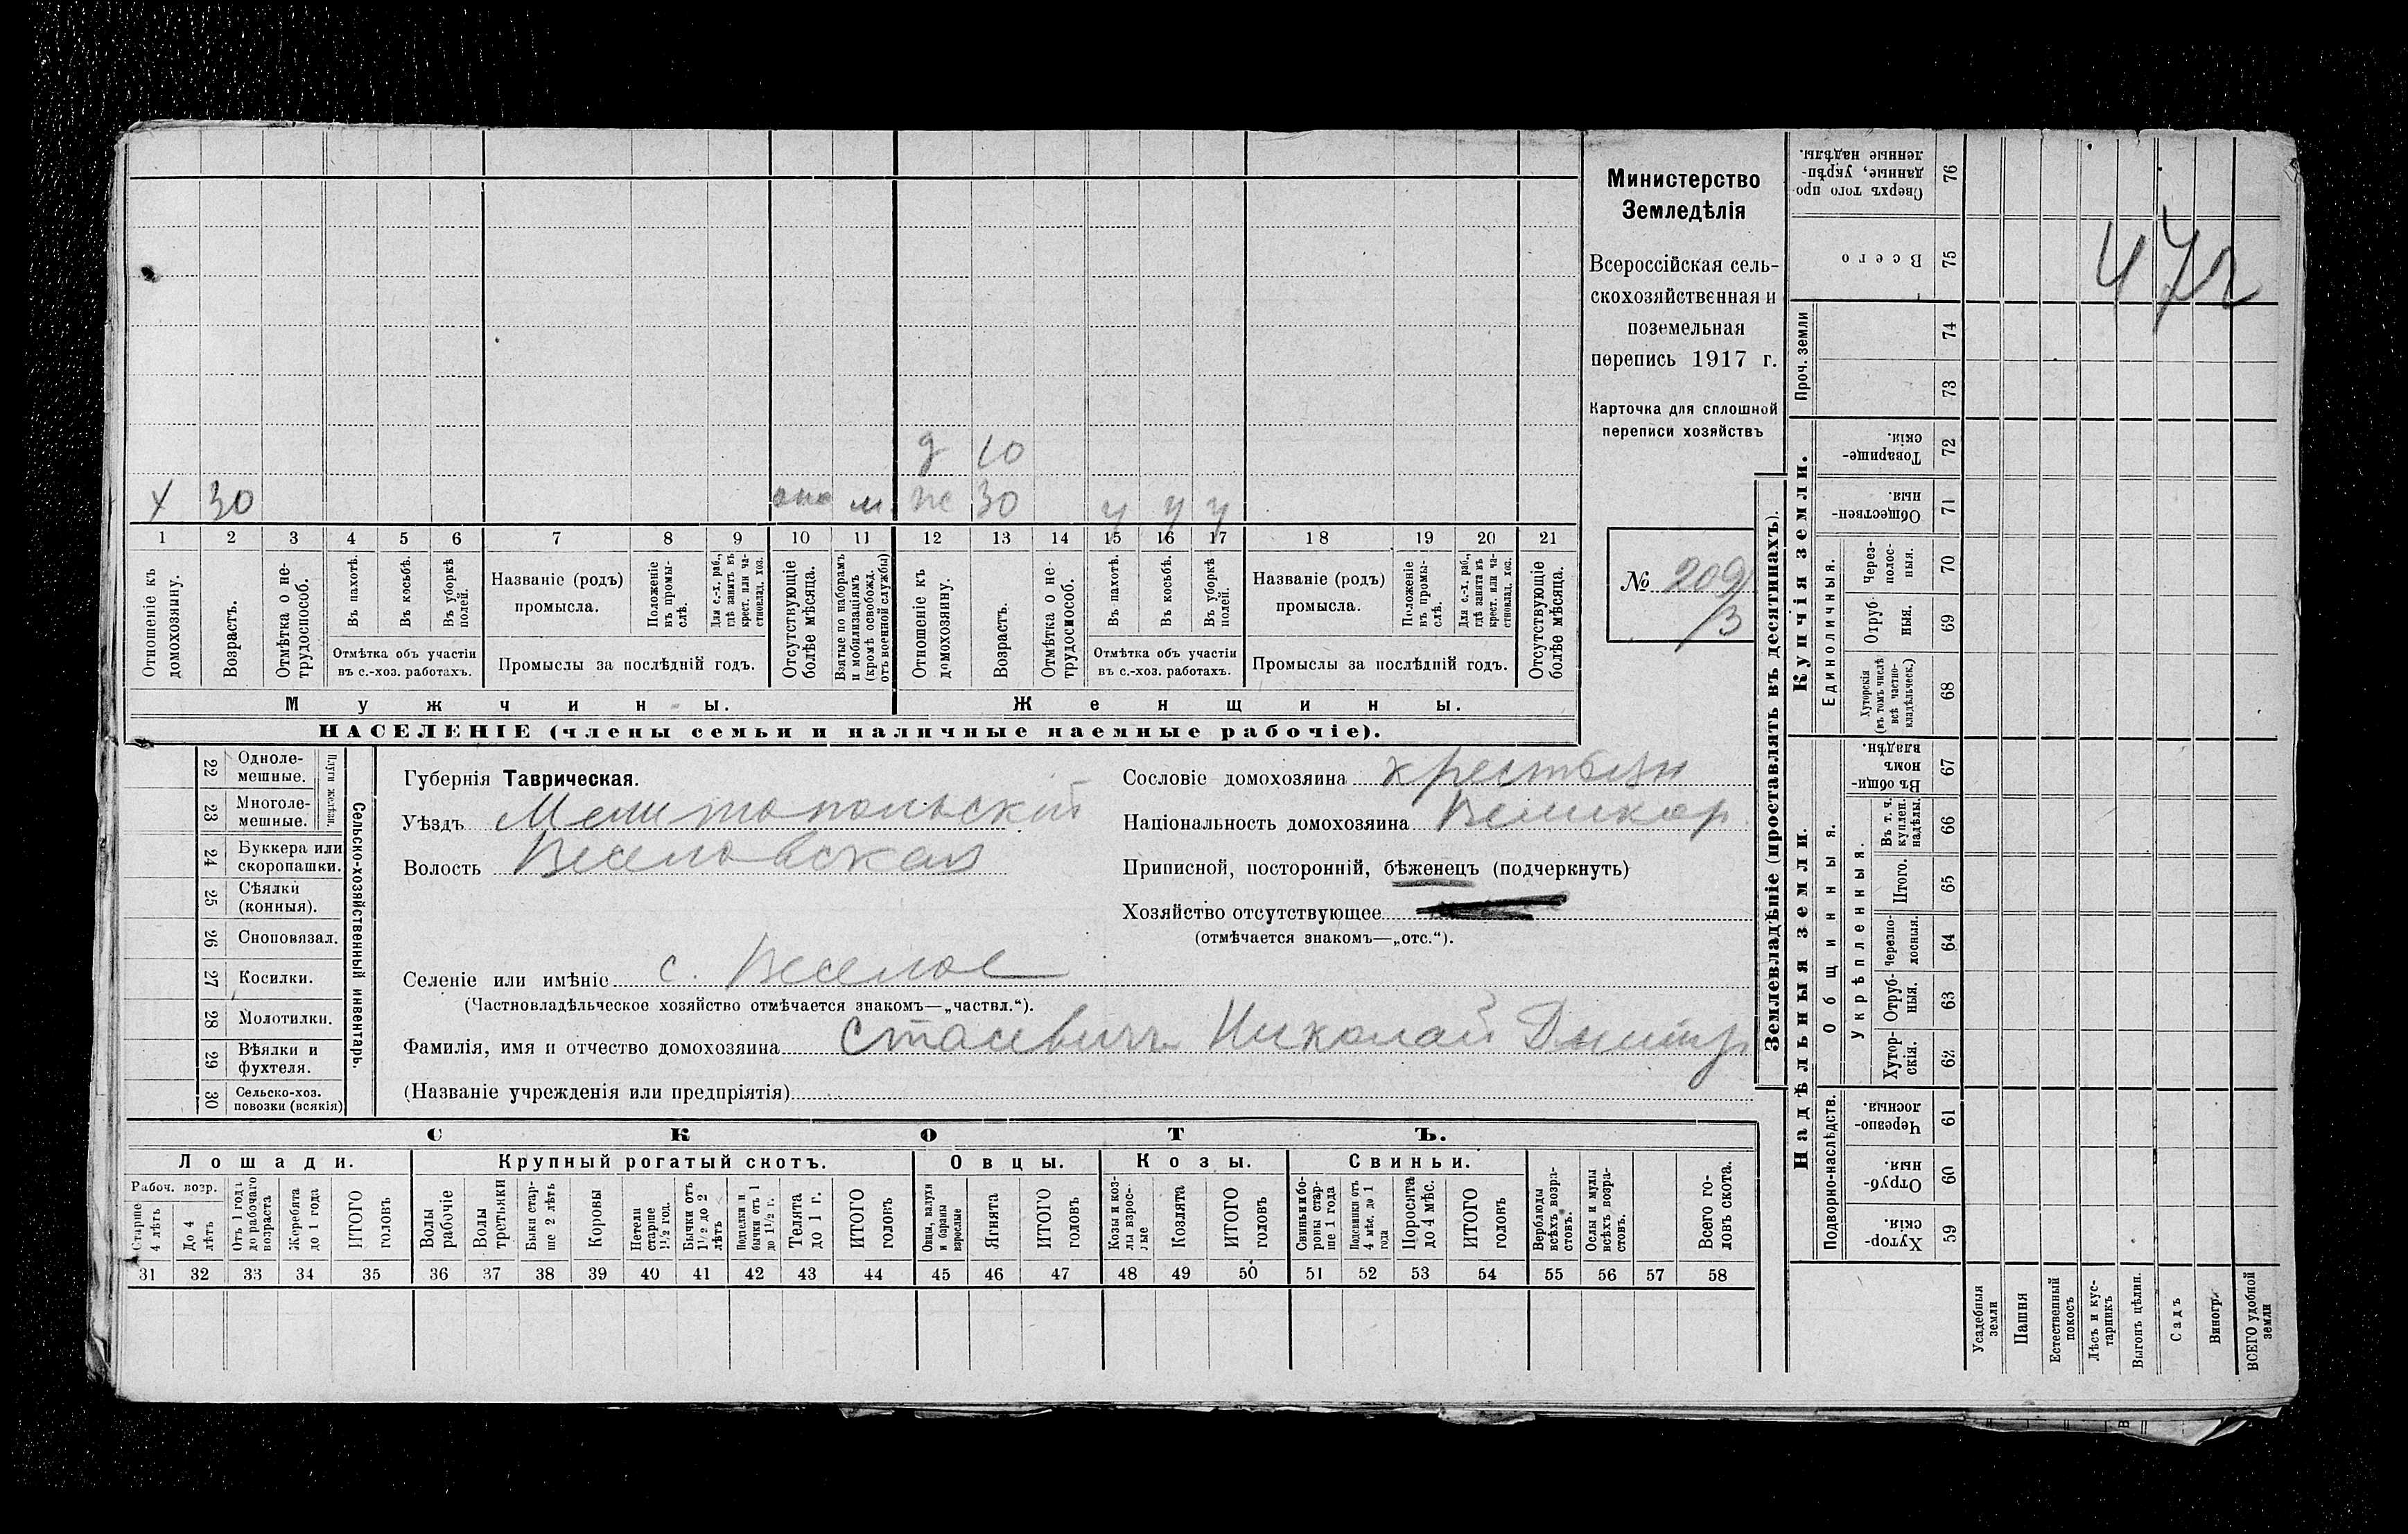 Министерство
Земледѣлія
Всероссійская сель-
скохозяйственная и
поземельная
перепись 1917 г.
Карточка для сплошной
переписи хозяйствъ
№ 209/3
472
д 10
х 30 м ж 30 у у у
1 2 3 4 5 6 7 8 9 10 11 12 13 14 15 16 17 18 19 20 21
Отношеніе къ домохозяину.
Возрастъ.
Отмѣтка о не-трудоспособ.
Въ пахотѣ.
Въ косьбѣ.
Въ уборкѣ полей.
Отмѣтка объ участіи
въ с.-хоз. работахъ.
Названіе (родъ)
промысла.
Положеніе въ промы-слѣ.
Для с.-х. раб., гдѣ занятъ въ крест. или ча-стновлад. хоз.
Промыслы за послѣдній годъ.
Отсутствующіе болѣе мѣсяца.
Взятые по наборамъ и мобилизаціямъ (кромѣ освобожд. отъ военной службы)
Отношеніе къ домохозяину.
Возрастъ.
Отмѣтка о не-трудоспособ.
Въ пахотѣ.
Въ косьбѣ.
Въ уборкѣ полей.
Отмѣтка объ участіи
въ с.-хоз. работахъ.
Названіе (родъ)
промысла.
Положеніе въ промы-слѣ.
Для с.-х. раб., гдѣ занята въ крест. или ча-стновлад. хоз.
Промыслы за послѣдній годъ.
Отсутствующіе болѣе мѣсяца.
Мужчины. Женщины.
НАСЕЛЕНІЕ (члены семьи и наличные наемные рабочіе).
22 Одноле-мешные.
23 Многоле-мешные.
Плуги желѣзн.
24 Буккера или скоропашки.
25 Сѣялки (конныя).
26 Сноповязал.
27 Косилки.
28 Молотилки.
29 Вѣялки и фухтеля.
30 Сельско-хоз. повозки (всякія)
Сельско-хозяйственный инвентарь.
Губернія Таврическая.
Уѣздъ Мелитопольскій
Волость Веселовская
Сословіе домохозяина крестьян
Національность домохозяина Великор.
Приписной, посторонній, бѣженецъ (подчеркнуть)
Хозяйство отсутствующее
(отмѣчается знакомъ—„отс.“).
Селеніе или имѣніе с. Веселое
(Частновладѣльческое хозяйство отмѣчается знакомъ—„частвл.“).
Фамилія, имя и отчество домохозяина Стасевичъ Николай Дмитр
(Названіе учрежденія или предпріятія)
СКОТЪ.
Лошади. Крупный рогатый скотъ. Овцы. Козы. Свиньи.
Рабоч. возр.
Старше 4 лѣтъ
До 4 лѣтъ
Отъ 1 года до рабочаго возраста
Жеребята до 1 года
ИТОГО головъ
Волы рабочіе
Волы третьяки
Быки стар-ше 2 лѣтъ
Коровы
Нетели старше 1½ год.
Бычки отъ 1½ до 2 лѣтъ
Подтелки и бычки отъ 1 до 1½ г.
Телята до 1 г.
ИТОГО головъ
Овцы, валухи и бараны взрослые
Ягнята
ИТОГО головъ
Козы и коз-лы взрос-лые
Козлята
ИТОГО головъ
Свиньи и бо-ровы стар-ше 1 года
Подсвинки отъ 4 мѣс. до 1 года
Поросята до 4 мѣс.
ИТОГО головъ
Верблюды всѣхъ возра-стовъ.
Ослы и мулы всѣхъ возра-стовъ.
Всего го-ловъ скота.
31 32 33 34 35 36 37 38 39 40 41 42 43 44 45 46 47 48 49 50 51 52 53 54 55 56 57 58
Землевладѣніе (проставлять въ десятинахъ).
Купчія земли.
Надѣльныя земли.
Сверхъ того про-данные, укрѣп-ленные надѣлы. 76
Всего 75
Проч. земли
74
73
Товарище-скія. 72
Обществен-ныя. 71
Единоличныя.
Через-полос-ныя. 70
Отруб-ныя. 69
Хуторскія (въ томъ числѣ всѣ частно-владѣльческ.) 68
Общинныя.
Въ общи-номъ владѣн. 67
Укрѣпленныя.
Въ т. ч. куплен. надѣлы. 66
Итого. 65
Черезпо-лосныя. 64
Отруб-ныя. 63
Хутор-скія. 62
Подворно-наслѣдств.
Черезпо-лосныя. 61
Отруб-ныя. 60
Хутор-скія. 59
Усадебныя земли
Пашня
Естественный покосъ
Лѣсъ и кус-тарникъ
Выгонъ цѣлин.
Садъ
Виногр.
ВСЕГО удобной земли